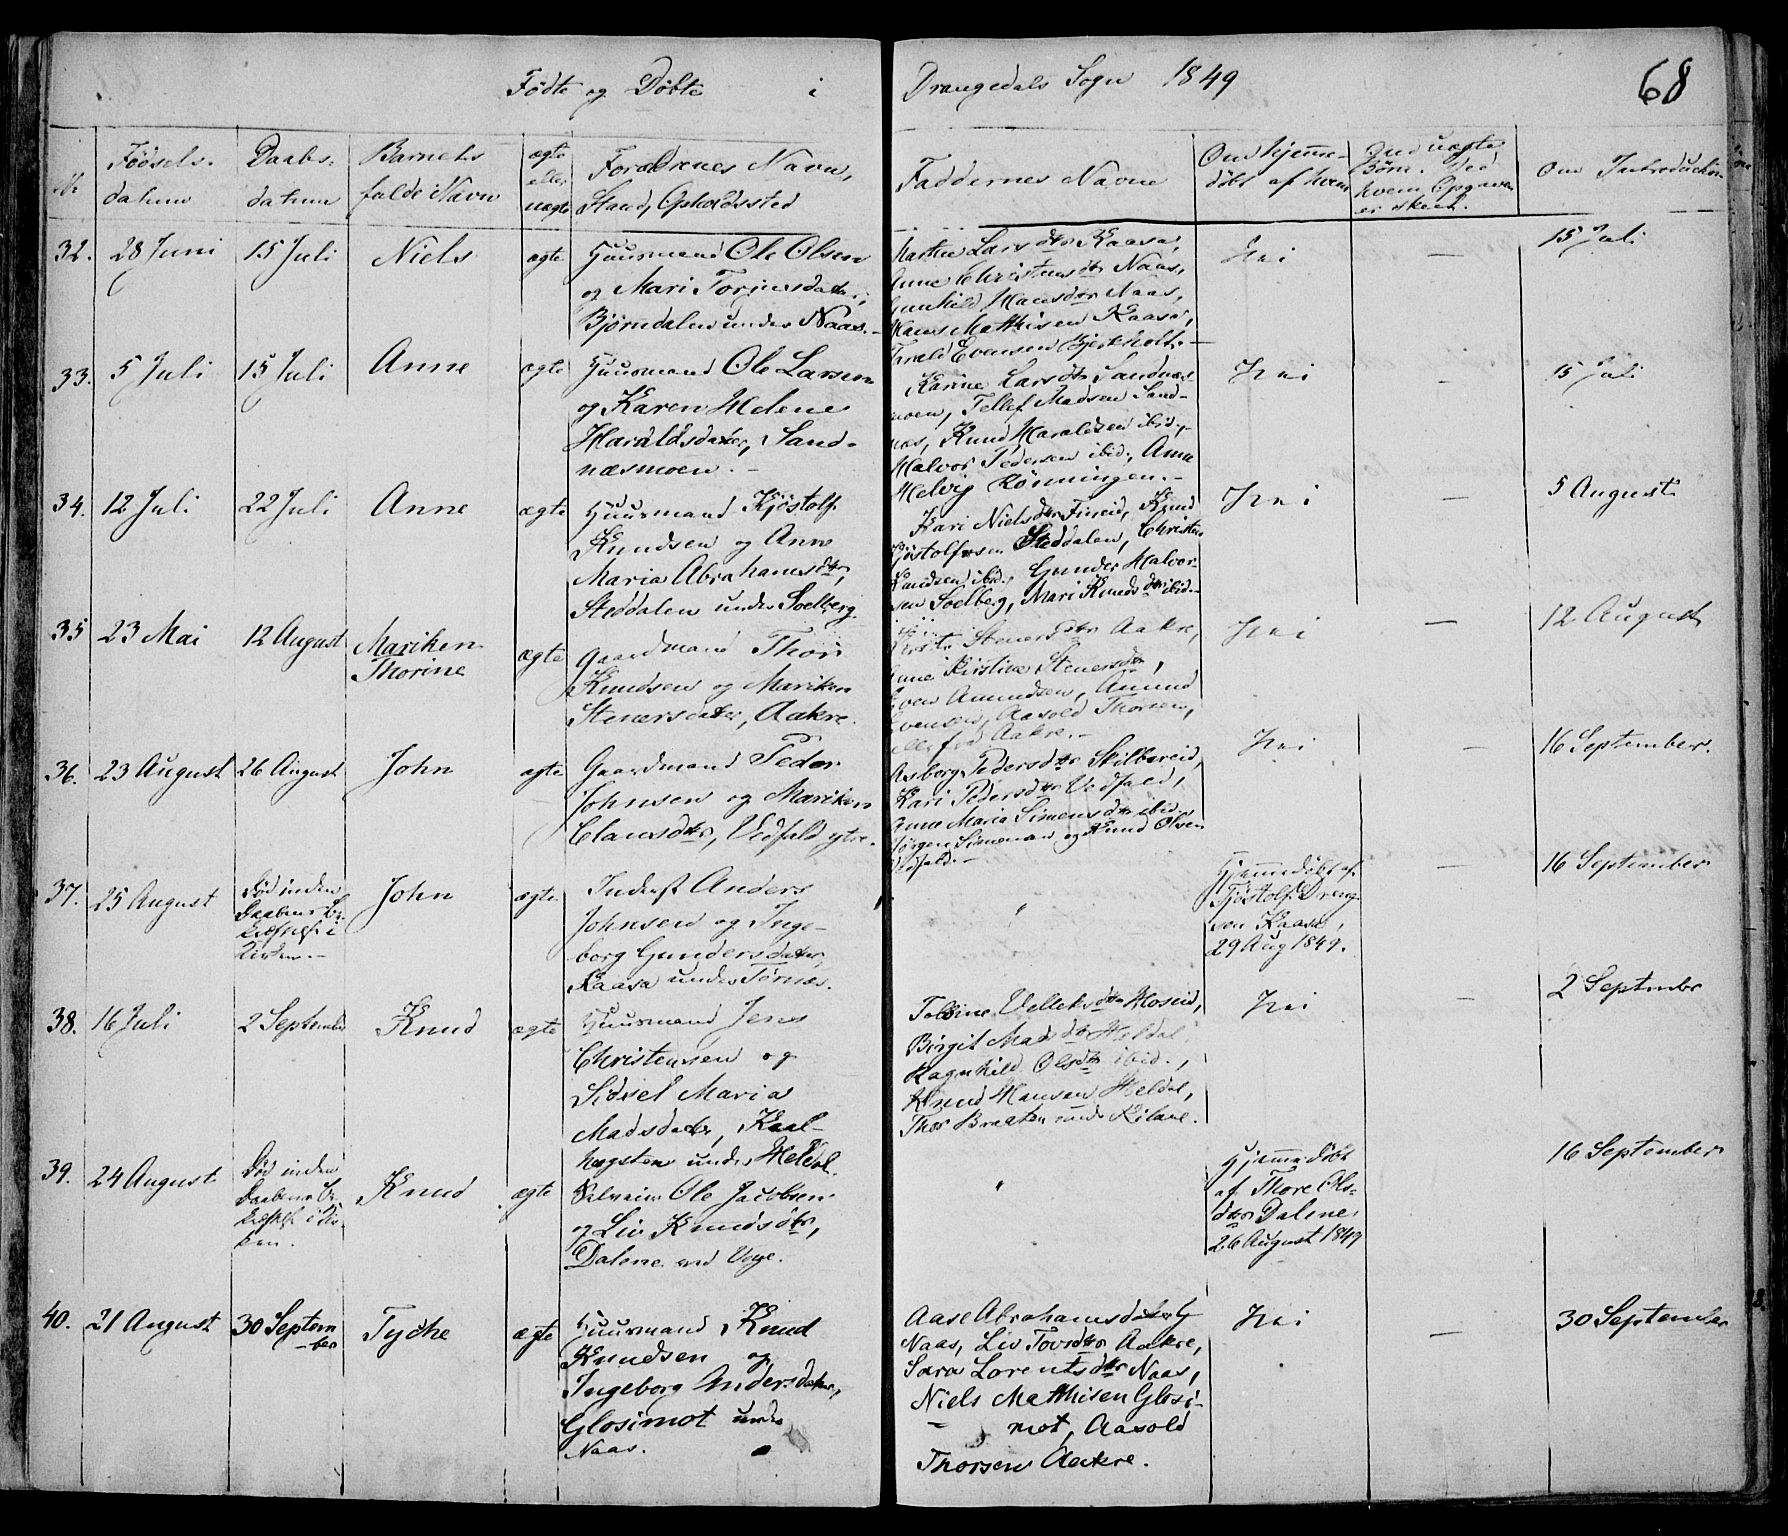 Fødte og Døbte i Drangedals Sogn 1849 68
No Fødsels- datum
Daabs- datum
Barnets fulde Navn
ægte eller uægte
Forældrenes Navn, Stand, Opholdssted
Faddernes Navne
Om hjemme- døbt af hvem
Om Introduction
32. 28 Juni 15 Juli Niels ægte
Huusmand Ole Olsen
og Mari Torjusdatter,
Bjørndalen under Naas.-
Larsdtr Kaasa,
Anne Christensdtr Naas,
Gunhild Hansdtr Naas,
Hans Matthisen Kaasa,
Evensen Bjerkholt.-
Nei - 15 Juli
33. 5 Juli 15 Juli Anne ægte
Huusmand Ole Larsen
og Karen Helene
Haraldsdatter, Sand-
næsmoen.-
Karine Larsdtr Sandnæs-
moen, Tellef Madsen Sand-
næs, Knud Haraldsen ibid.,
Halvor Pedersen ibid., Anne
Helvig Rönningen.-
Nei - 15 Juli
34. 12 Juli 22 Juli Anne ægte
Huusmand Kjöstolf
Knudsen og Anne
Maria Abrahamsdtr,
Steddalen under Soelberg
Kari Nielsdtr Fineid, Knud
Kjöstolfsen Steddalen, Christen
Knudsen ibid., Gunder Halvor-
sen Soelberg, Mari Knudsdtr ibid.-
Nei - 5 August
35 23 Mai 12 August Mariken
Thorine ægte
Gaardmand Thor
Knudsen og Mariken
Stenersdatter, Aakre.
Stenersdtr Aakre,
Anne Kirstine Stenersdtr,
Even Amundsen, Amund
Evensen, Aasold Thorsen,
alle fra Aakre.-
Nei - 12 August
36. 23 August 26 August John ægte
Gaardmand Peder
Johnsen og Mariken
Clausdtr, Vedfald ytre.
Asborg Pedersdtr Skilbereid,
Kari Pedersdtr Vedfald,
Anne Maria Simensdtr ibid.,
Jörgen Simonsen og Knud Olsen
Vedfald.-
Nei - 16 September.
37. 25 August Død inden
Daabens Be-
kræftelse i
Kirken.- John ægte
Inderst Anders
Johnsen og Inge-
borg Gundersdatter,
Kaasa under Tørnæs.
"
Hjemmedöbt af
Tjöstolf Dreng-
sen Kaasa,
29 Aug 1849. - 16 September
38. 16 Juli 2 September Knud ægte
Huusmand Jens
Christensen og
Sidsel Maria
Madsdatter, Kaal-
hagsten under Heldal.
Velleksdtr Moseid,
Birgit Madsdtr Heldal
Ragnhild Olsdtr ibid.,
Knud Hansen Heldal,
Thor Braaten under Kilane.
Nei - 2 September
39. 24 August Död inden
Daabens Be-
kræftelse i Kir-
ken. Knud ægte
Selveier Ole Jacobsen
og Liv Knudsdtr,
Dalene ved Voje.
"
Hjemmedöbt
af Thore Ols-
dtr Dalene
26 August 1849
16 September
40. 21 August 30 Septem-
ber Tyche ægte
Huusmand Knud
Knudsen og
Ingeborg Andersdatter,
Glosimot under
Naas.
Aase Abrahamsdatter
Naas, Liv Torsdtr Aakre,
Sara Lorentsdtr Naas,
Niels Matthisen Glosi-
mot, Aasold
Thorsen Aakre.
Nei - 30 September